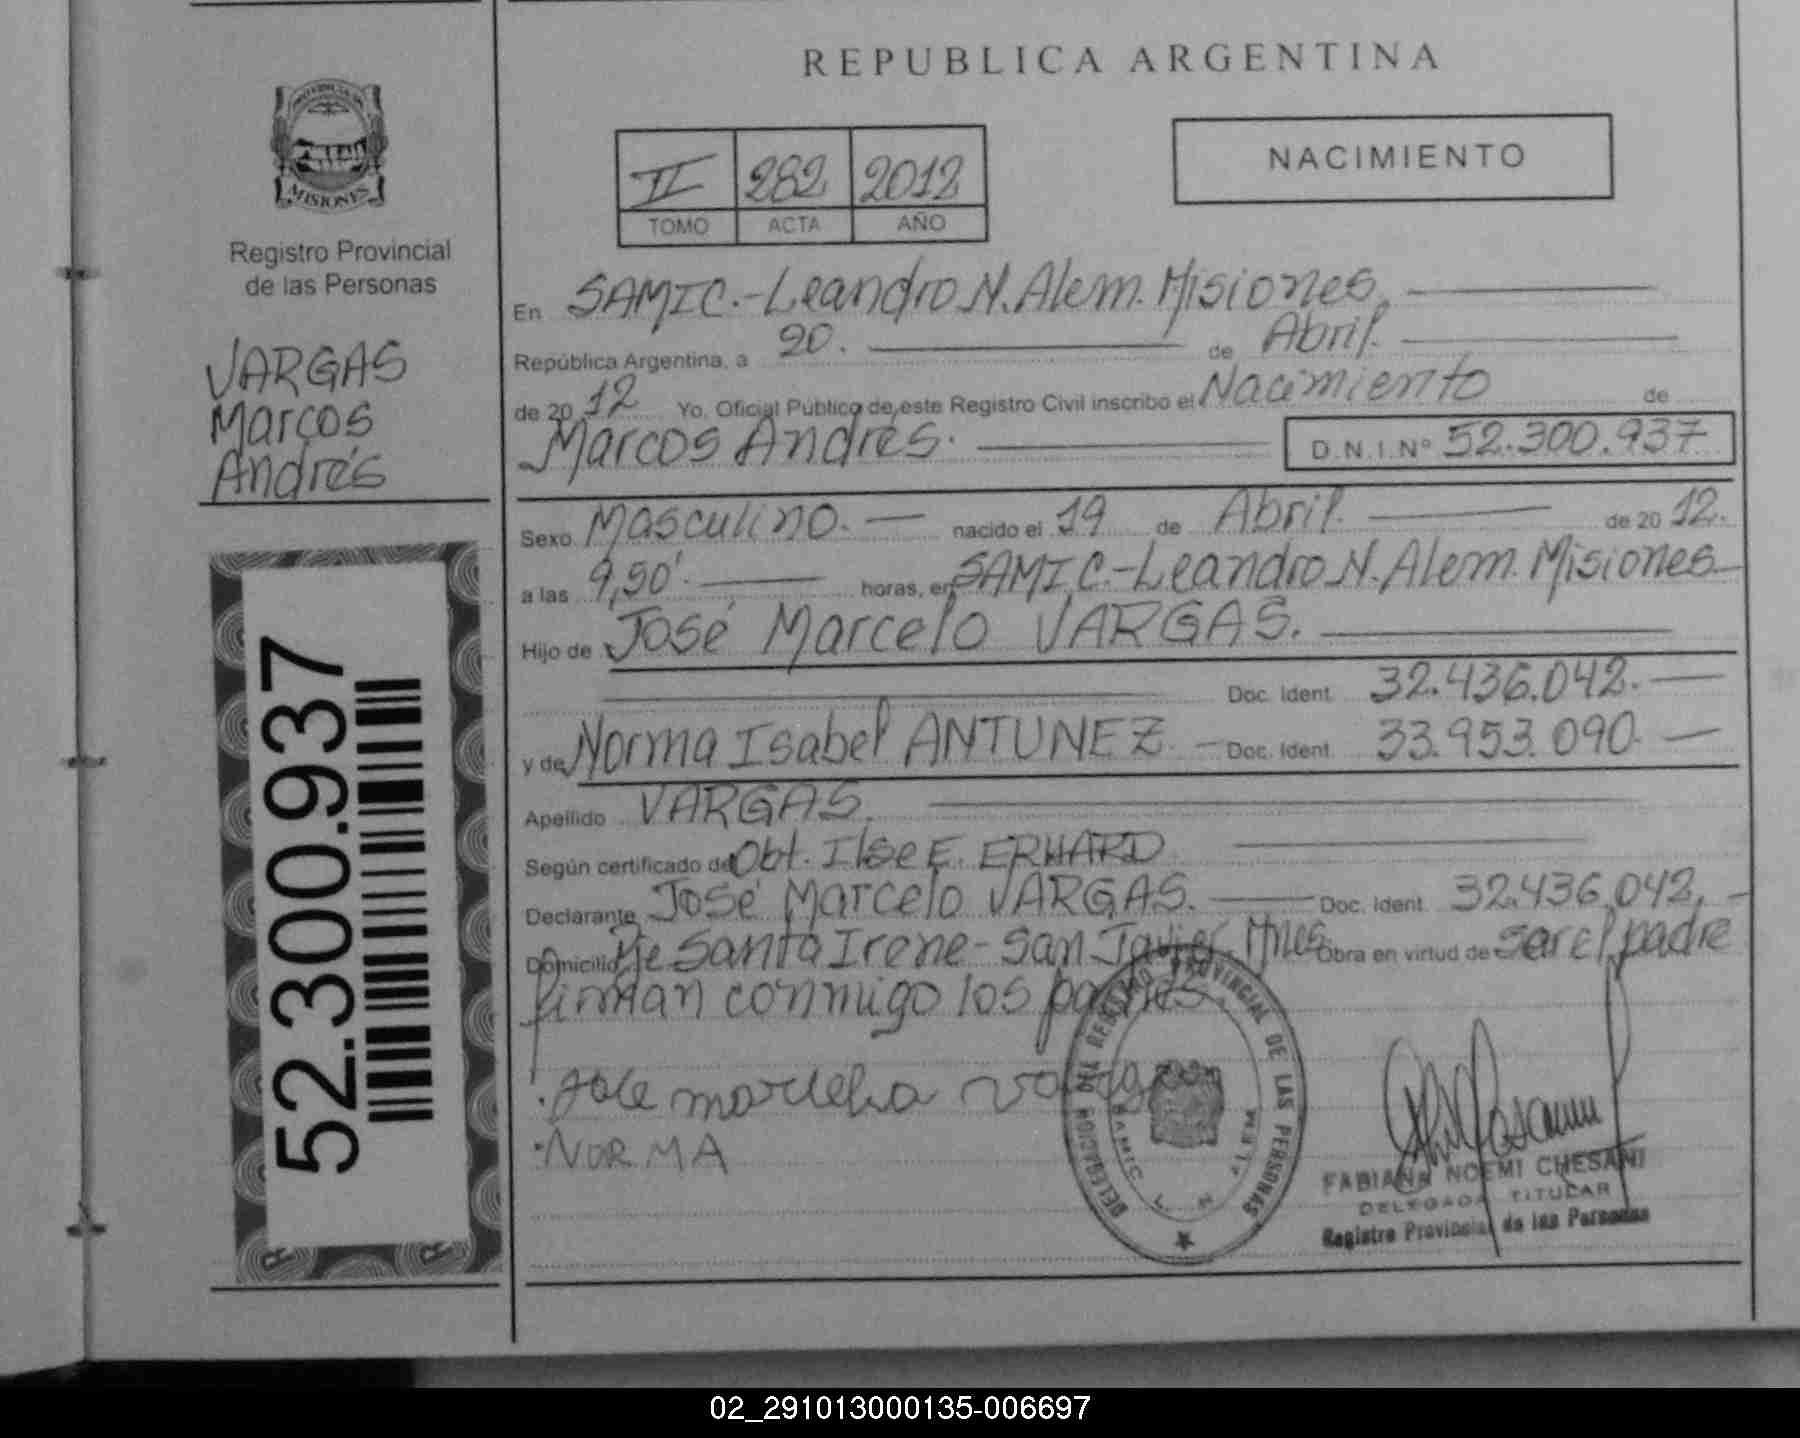 REPUBLICA ARGENTINA
NACIMIENTO
II 282 2012
TOMO ACTA AÑO
MISIONES
Registro Provincial
de las Personas
VARGAS
Marcos
Andrés
52.300.937
En SAMIC.-Leandro N. Alem. Misiones.
República Argentina, a 20. de Abril.
de 20 12 Yo, Oficial Público de este Registro Civil inscribo el Nacimiento de
Marcos Andrés. D.N.I.Nº 52.300.937
Sexo Masculino. nacido el 19 de Abril. de 20 12.
a las 9,50'. horas, en SAMIC.-Leandro N. Alem. Misiones
Hijo de José Marcelo VARGAS.
Doc. Ident. 32.436.042.
y de Norma Isabel ANTUNEZ. Doc. Ident. 33.953.090.
Apellido VARGAS.
Según certificado de Obt. Ilse E. ERHARD
Declarante José Marcelo VARGAS. Doc. Ident. 32.436.042.
Domicilio Pje Santa Irene - San Javier. Mnes Obra en virtud de ser el padre
firman conmigo los padres
NORMA
DELEGACION DEL REGISTRO PROVINCIAL DE LAS PERSONAS
SAMIC L. N. ALEM
FABIANA NOEMI CHESANI
DELEGADA TITULAR
Registro Provincial de las Personas
02_291013000135-006697